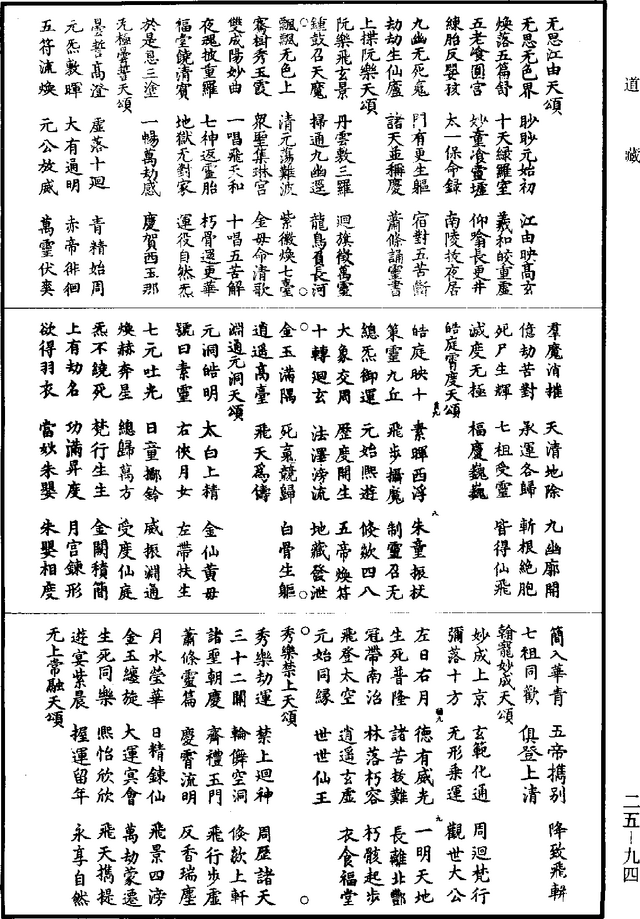 道藏
无思江由天頌
无思无色界 眇眇元始初 江由映高玄
煥落五篇舒 十天綠羅室 羲和皎重虛
五老飡圓宮 妙童飡靈墟 仰喻長更井
練胎反嬰孩 太一保命錄 南陵技夜居
九幽无死冤 門有更生軀 宿對五苦斷
劫劫生仙廬 諸天並稱慶 蕭條誦靈書
上揲阮樂天頌
阮樂飛玄景 丹雲敷三羅 迴旗徵萬靈
鍾鼓召天魔 掃通九幽逕 龍鳥負長河
飄飄无色上 清元蕩難波 紫微煥七臺
騫樹秀玉霞 眾聖集琳宮 金母命清歌
雙成陽妙曲 一唱飛天和 十唱五苦解
夜魂披重羅 七神返靈胎 朽骨還更華
福堂饒清賓 地獄无對家 運役自然炁
於是息三塗 一暢萬劫感 慶賀西王那
无極曇誓天頌
曇誓高澄 虛落十迴 青精始周
元炁敷暉 大有通明 赤帝徘徊
五符流煥 元公放威 萬靈伏奏
羣魔消摧 天清地除 九幽廓開
億劫苦對 承運各歸 斬根絕胞
死尸生輝 七祖受靈 皆得仙飛
滅度无極 福慶巍巍
皓庭霄度天頌
皓庭映十 素暉西浮 朱童振杖
策靈九丘 飛步攝魔 制靈召无
總炁御運 元始熙遊 倏歘四八
大象交周 歷度開生 五帝煥符
十轉迴玄 法澤滂流 地藏發泄
金玉滿隅 死冤競歸 白骨生軀
逍遥高臺 飛天爲儔
淵通元洞天頌
元洞皓明 太白上精 金仙黃母
號曰素靈 右侠月女 左帶扶生
七元吐光 日童擲鈴 威振淵通
煥赫奔星 總歸萬方 受度仙庭
炁不饒死 梵行生生 金關積簡
上有劫名 功滿昇度 月宮鍊形
欲得羽衣 當妙朱嬰 朱嬰相度
簡入華青 五帝攜別 降致飛輧
七祖同歡 俱登上清
翰寵妙成天頌
妙成上京 玄範化通 周迴梵行
彌落十方 无形乘運 觀世大公
左日右月 德有威光 一明天地
生死普隆 諸苦拔難 長離北酆
冠帶南治 林落朽容 朽骸起步
飛登太空 逍遥玄虛 衣食福堂
元始同緣 世世仙王
秀樂禁上天頌
秀樂劫運 禁上迴神 周歷諸天
三十二關 輪儛空洞 倏歘上軒
諸聖朝慶 齊禮玉門 飛行步虛
蕭條靈篇 慶霄流明 反香瑞塵
月水瑩華 日精鍊仙 飛景四滂
金玉纏旋 大運㝠會 萬劫蒙遷
生死同樂 熙怡欣欣 飛天攜提
遊宴紫晨 握運留年 永享自然
无上常融天頌
二五-九四